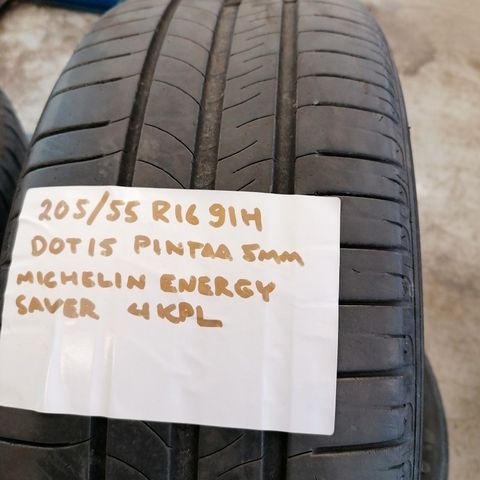 205/55 R16 91H
DOT15 PINTAA 5mm
MICHELIN ENERGY
SAVER 4KPL